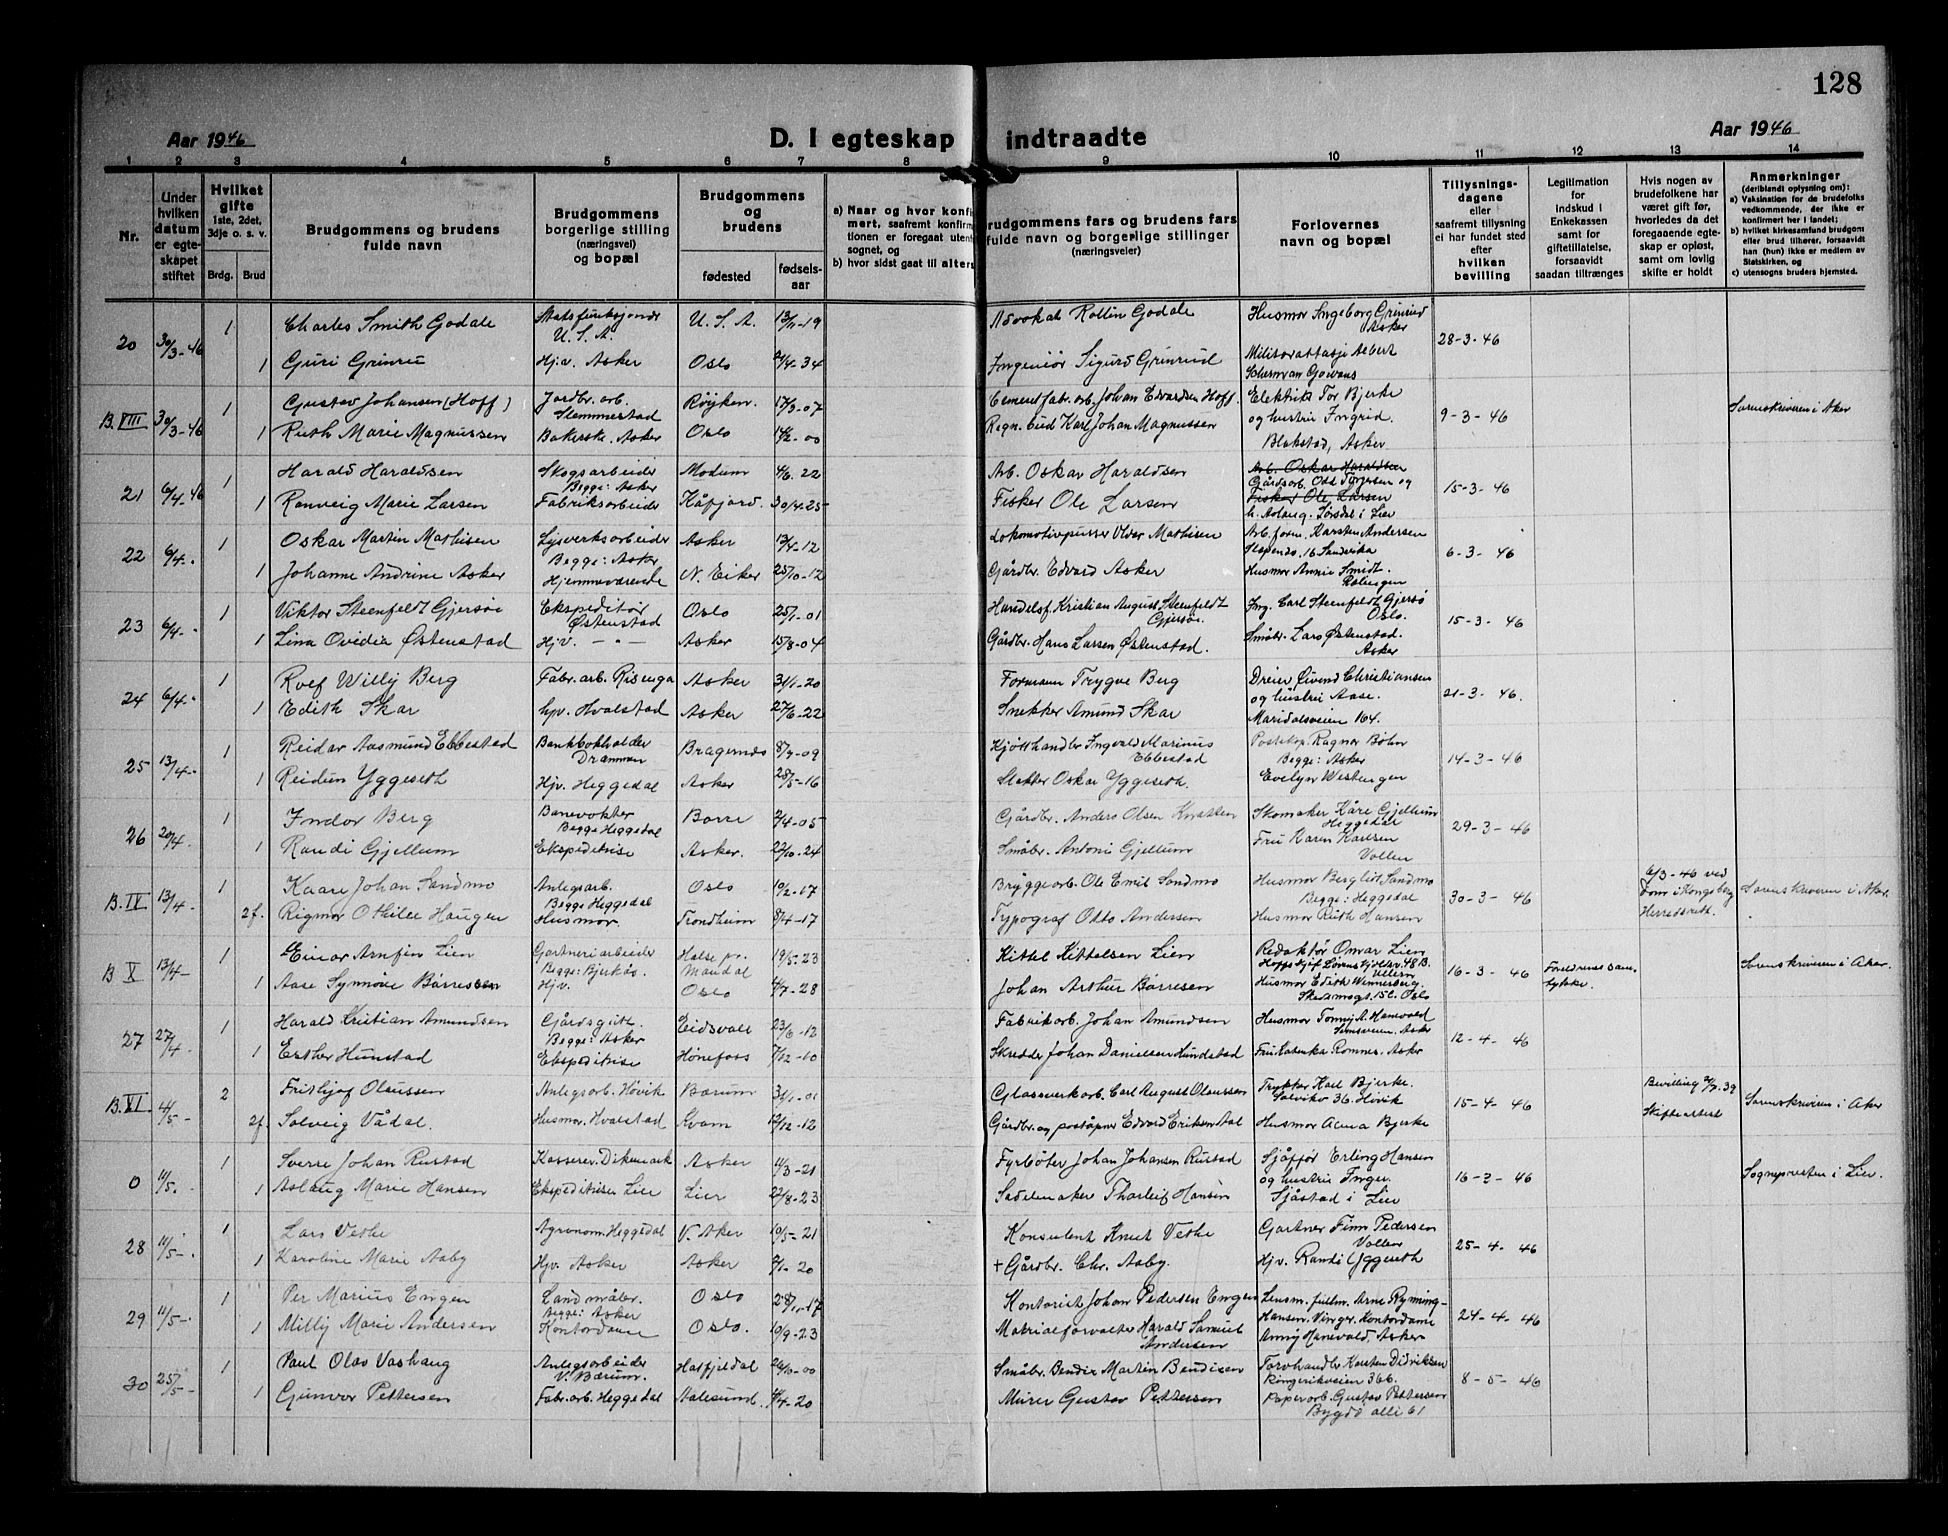 128
Aar 1946
D. I egteskap indtraadte
Aar 1946
1 2 3 4 5 6 7 8 9 10 11 12 13 14
Nr.
Under hvilken datum er egteskapet stiftet
Hvilket gifte
1ste, 2det, 3dje o. s. v.
Brdg. Brud
Brudgommens og brudens fulde navn
Brudgommens borgerlige stilling (næringsvei) og bopæl
Brudgommens og brudens
fødested
fødselsaar
a) Naar og hvor konfi
mert, saafremt konfirm
tionen er foregaat utenf
sognet, og
b) hvor sidst gaat til alters
rudgommens fars og brudens fars
fulde navn og borgerlige stillinger
(næringsveier)
Forlovernes
navn og bopæl
Tillysningsdagene
eller
saafremt tillysning
ei har fundet sted
efter
hvilken
bevilling
Legitimation
for
indskud i
Enkekassen
samt for
giftetillatelse,
forsaavidt
saadan tiltrænges
Hvis nogen av
brudefolkene har
været gift før,
hvorledes da det
foregaaende egteskap er opløst,
samt om lovlig
skifte er holdt
Anmerkninger
(deriblandt oplysning om):
a) Vaksination for de brudefolks
vedkommende, der ikke er
konfirmert her i landet;
b) hvilket kirkesamfund brudgom
eller brud tilhører, forsaavidt
han (hun) ikke er medlem av
Statskirken, og
c) utensogns bruders hjemsted.
20 30/3-46 1 Charles Smith Godale U.S.A. U.S.A. 13/11-19 Advokat Rollin Godale Husmor Ingeborg Grinrud Asker 28-3-46
1 Guri Grinrud Hjv. Asker Oslo Ingeniør Sigurd Grinrud Militærattasje Albert Scherman Gowans
B.VIII 30/3-46 1 Gustav Johansen (Hoff) Jordbr. arb. Slemmestad Røyken 17/3-07 Cementfabr. arb. Johan Edvardsen Hoff Elektrik Tor Bjerke 9-3-46 Sorenskriveren i Aker
1 Ruth Marie Magnussen Asker Oslo 14/2-00 Regn. bud Karl Johan Magnussen og hustru Ingrid. Blakstad, Asker
21 6/4-46 1 Harald Haraldsen Skogsarbeider Begge: Asker Modum 4/6.22 Arb. Oskar Haraldsen Arb. Oskar Haraldsen Gårdsarb. Odd Torgersen og 15-3-46
1 Ranveig Marie Larsen Fabriksarbeider Kåfjord 30/4-25 Fisker Ole Larsen Fisker Ole Larsen h. Aslaug. i Lier
22 6/4- 1 Oskar Martin Mathisen Lysverksarbeider Begge: Asker Asker 13/4-12 Lokomotivpusser Mathisen Arb. form. Karsten Andersen 16 Sandvika 6-3-46
1 Johanne Andrine Asker Hjemmeværende N. Eiker 25/10-12 Gårdbr. Edvard Asker Husmor Annie Smidt.
23 6/4- 1 Viktor Steenfeldt Gjersøe Ekspeditør Østenstad Oslo 25/1-01 Handelsf. Kristian August Steenfeldt Gjersøe Ing. Carl Steenfeldt Gjersø Oslo. 15-3-46
1 Lina Ovidia Østenstad Hjv. -"- Asker 15/8-04 Gårdbr. Hans Larsen Østenstad. Småbr. Lars Østenstad. Asker
24 6/4- 1 Rolf Willy Berg Fabr. arb. Risenga Asker 31/1-20 Formann Trygve Berg Dreier Øivind Christiansen 21-3-46.
1 Edith Skar hjv. Hvalstad Asker 27/6-22 Snekker Amund Skar og hustru Aase. Maridalsveien 164.
25 13/4- 1 Reidar Aasmund Ebbestad Bankbokholder Drammen Bragernes 8/7-09 Kjøtthandler Ingvald Marinus Ebbestad Ragnar Bøhn Begge: Asker 14-3-46
1 Reidun Yggeseth Hjv. Heggedal Asker 28/5-16 Slakter Oskar Yggeseth. Evelyn Westengen
26 20/4- 1 Indor Berg Banevokter Begge Heggedal Borre 2/4-05 Gårdbr. Anders Olsen Skomaker Kåre Gjellum Heggedal 29-3-46
1 Randi Gjellum Ekspeditrise Asker. 22/10-24 Småbr. Antoni Gjellum Fru Karen Karlsen Vollen
B.IV 13/4- 1 Kaare Johan Sandmo Anlegsarb. Begge Heggedal Oslo 19/2-17 Bryggearb. Ole Emil Sandmo Husmor Bergliot Sandmo Begge: Heggedal 30-3-46 6/3-46 ved dom i Kongsberg Herredsrett. Sorenskriveren i Aker.
2f. Rigmor Othilie Haugen Husmor Trondheim 8/4-17 Typograf Otto Andersen Husmor Ruth Hansen
B V 13/4- 1 Einar Arnfin Lien Gartneriarbeider Begge: Bjerkås. Halse pr. Mandal 19/5-23 Kittel Kittelsen Lien Redaktør Omar Lien 48 B. Ullern 16-3-46 Foreldrenes samtykke. Sorenskriveren i Aker.
1 Aase Synnøve Børressen Hjv. Oslo 4/7-28 Johan Arthur Børresen Husmor Edith Wennerberg. 15c. Oslo
27 27/4 1 Harald Kristian Amundsen Gårdsgutt. Begge: Asker Eidsvoll 23/6-12 Fabrikarb. Johan Amundsen Husmor Tonny A. Hanevold Asker 12-4-46
1 Esther Hunstad Ekspeditrise Hønefoss 7/12-10 Skredder Johan Danielsen Hundstad Fru Rommes. Asker
B.VI 4/5- 2 Frithjof Olaussen Anlegsarb. Høvik Bærum 31/1-01 Glassverkarb. Carl August Olaussen Trykker Karl Bjerke. Solvik 36. Høvik 15-4-46 Bevilling 39 Skifteattest Sorenskriveren i Aker
2f. Solveig Vådal. Husmor. Hvalstad Kvam 12/12-12 Gårdbr. og poståpner Edvard Eriksen Husmor Alma Bjerke
0 11/5. 1 Sverre Johan Rustad Kasserer. Dikemark Asker 11/3-21 Fyrbøter Johan Johansen Rustad Sjåffør Erling Hansen 16-3-46 Sogneprestn i Lier.
1 Aslaug Marie Hansen Ekspeditrise Lier Lier 22/8-23 Sadelmaker Thorleif Hansen og hustru Inger. Sjåstad i Lier
28 11/5- 1 Lars Vethe Agronom. Heggedal V. Aker 10/5-21 Konsulent Knut Vethe Gartner Finn Pedersen Vollen 25-4-46
1 Karoline Marie Aaby Hjv. Asker Asker 2/1-20 + Gårdbr. Chr. Aaby. Hjv. Randi Yggeseth
29 11/5- 1 Per Marius Engen Landmåler. Begge: Asker Oslo 28/1-17 Kontorist Johan Pedersen Engen Lensm. fullm. Arne Ryming- 24-4-46
1 Milly Marie Andersen Kontordame Oslo. 10/9-23 Matrialforvalter Harald Samuel Andersen Hansen. Vinger. Kontordame Anny Hanevold, Asker
30 25/5- 1 Paul Olav Vashaug Anlegsarbeider V. Bærum. Hatfjeldal -00 Småbr. Bendix Martin Bendixen Torvhandler Karsten Didriksen Ringerikveien 366. 8-5-46
1 Gunvor Pettersen Fabr. arb. Heggedal Aalesund. 4-20 Murer Gustav Pettersen Papirarb. Gustav Pettersen Bygdø allé 61